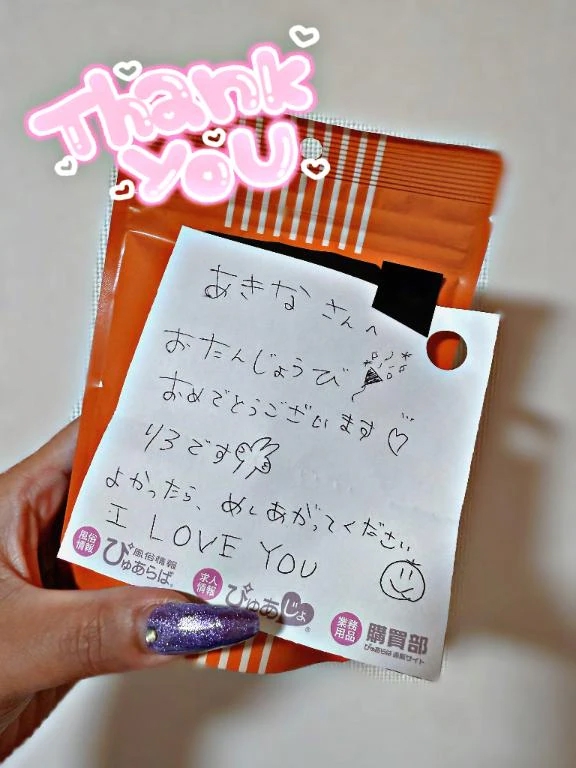 Thank
you
あきなさんへ
おたんじょうび
おめでとうございます
リコです
よかったら、めしあがってください
I LOVE YOU
風俗情報 風俗情報 ぴゅあらば®
求人情報 ぴゅあじょ®
業務用品 購買部
ぴゅあらば直販サイト